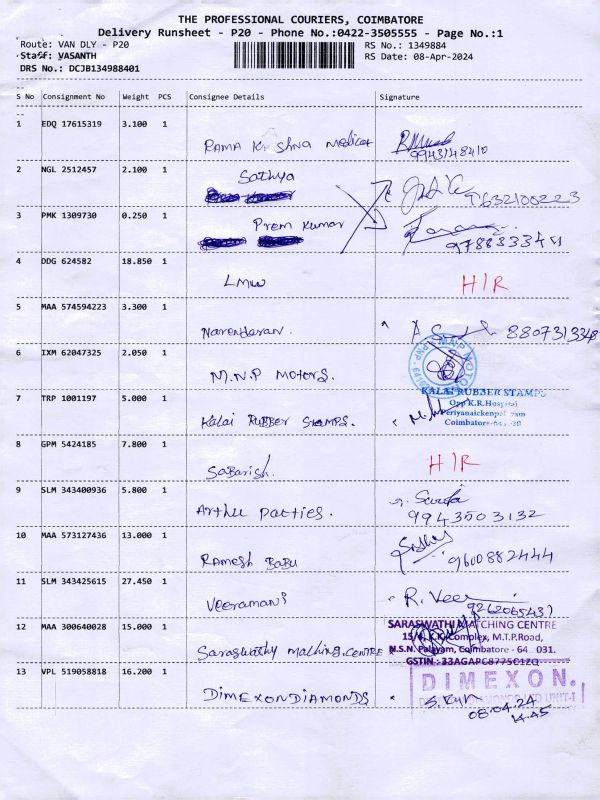 THE PROFESSIONAL COURIERS, COIMBATORE
Delivery Runsheet - P20 - Phone No.:0422-3505555 - Page No.:1
Route: VAN DLY - P20 RS No.: 1349884
Staff: VASANTH RS Date: 08-Apr-2024
DRS No.: DCJB134988401
S No Consignment No Weight PCS Consignee Details Signature
1 EDQ 17615319 3.100 1
Rama Krishna Medical 9943148410
2 NGL 2512457 2.100 1
Sathya 9632100223
3 PMK 1309730 0.250 1
Prem Kumar
4 DDG 624582 18.850 1
LMW H/R
5 MAA 574594223 3.300 1
Narendaran. 8807313348
6 IXM 62047325 2.050 1
M.N.P Motors.
M/N/P MOTORS
7 TRP 1001197 5.000 1
KALAI RUBBER STAMPS
Opp K.R.Hospital
Periyanaickenpalayam
Kalai Rubber Stamps. Coimbatore
8 GPM 5424185 7.800 1
Sabarish. H/R
9 SLM 343400936 5.800 1
Arthu Patties. 9943503132
10 MAA 573127436 13.000 1
Ramesh Babu 9600882444
11 SLM 343425615 27.450 1
Veeramani R. Veer
12 MAA 300640028 15.000 1
SARASWATHI MATCHING CENTRE
Complex, M.T.P.Road,
Saraswathy matching.centre N.S.N. Palayam, Coimbatore - 64 031.
GSTIN : 33AGAPG8775C1ZQ
13 VPL 519058818 16.200 1
DIMEXON.
DIMEXONDIAMONDS
08.04.24
14.45